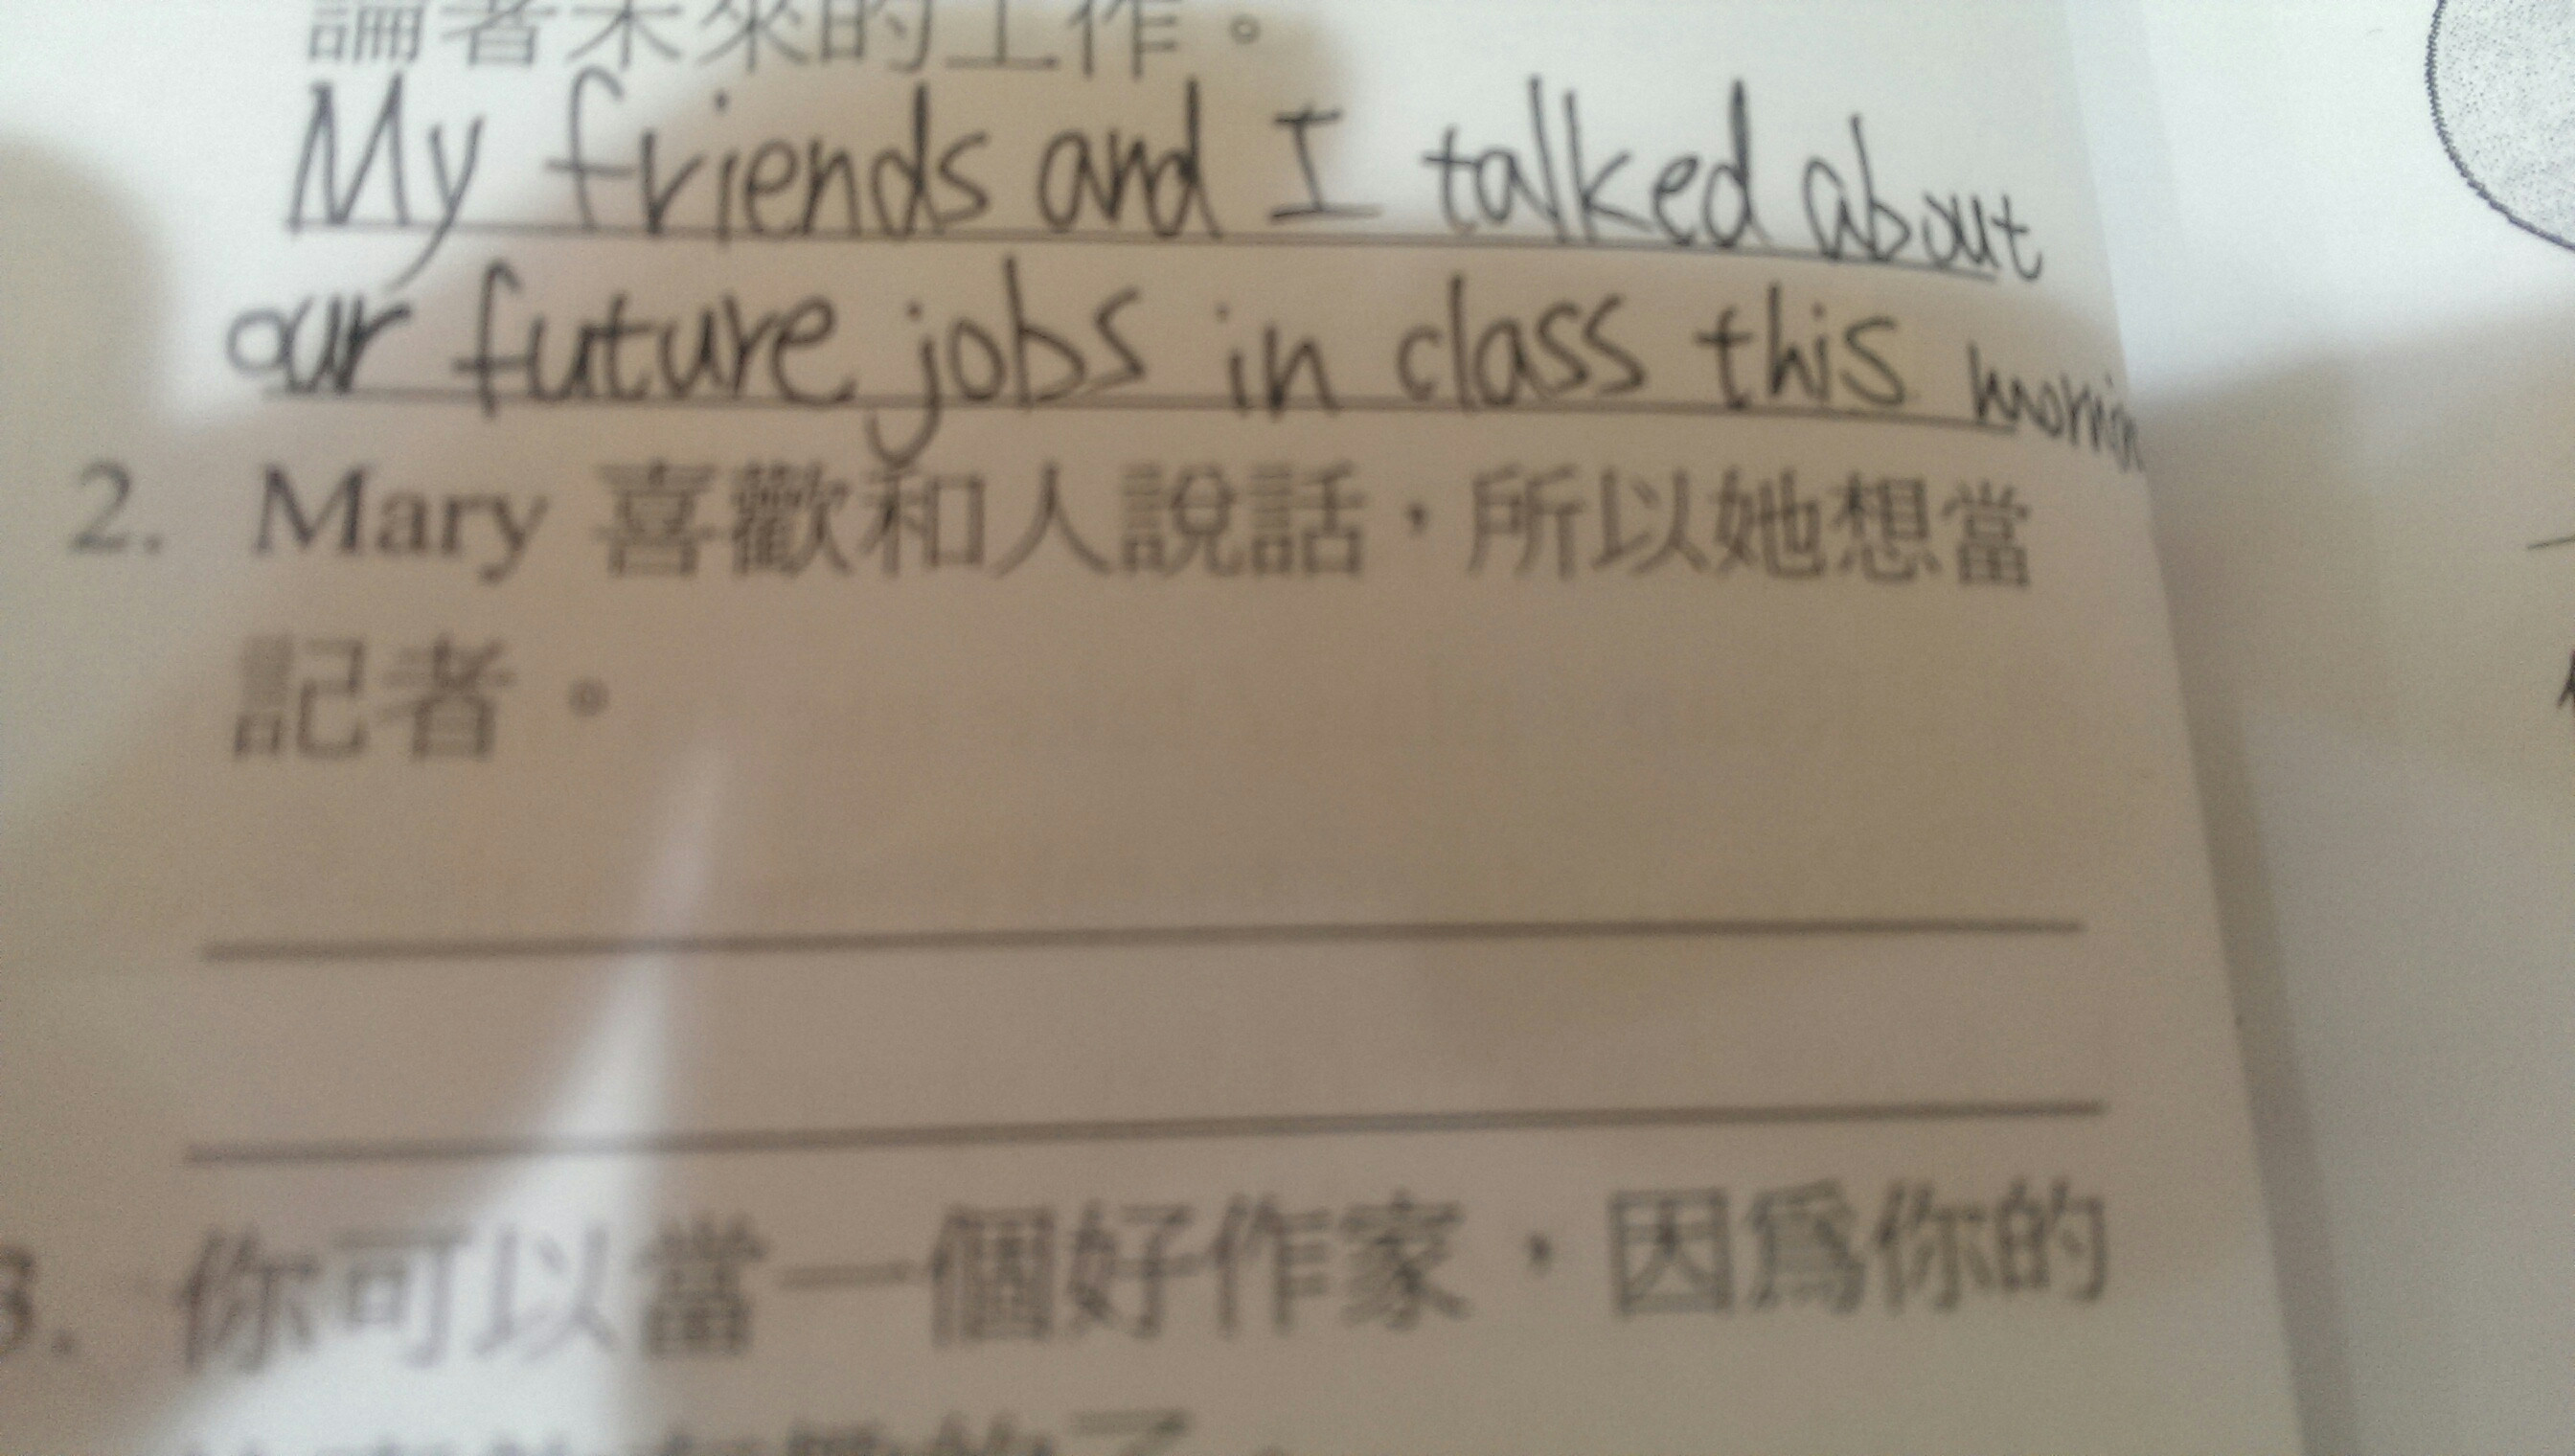 論著未來的工作。
My friends and I talked about
our future jobs in class this
2. Mary 喜歡和人說話，所以她想當
記者。
3. 你可以當一個好作家，因爲你的